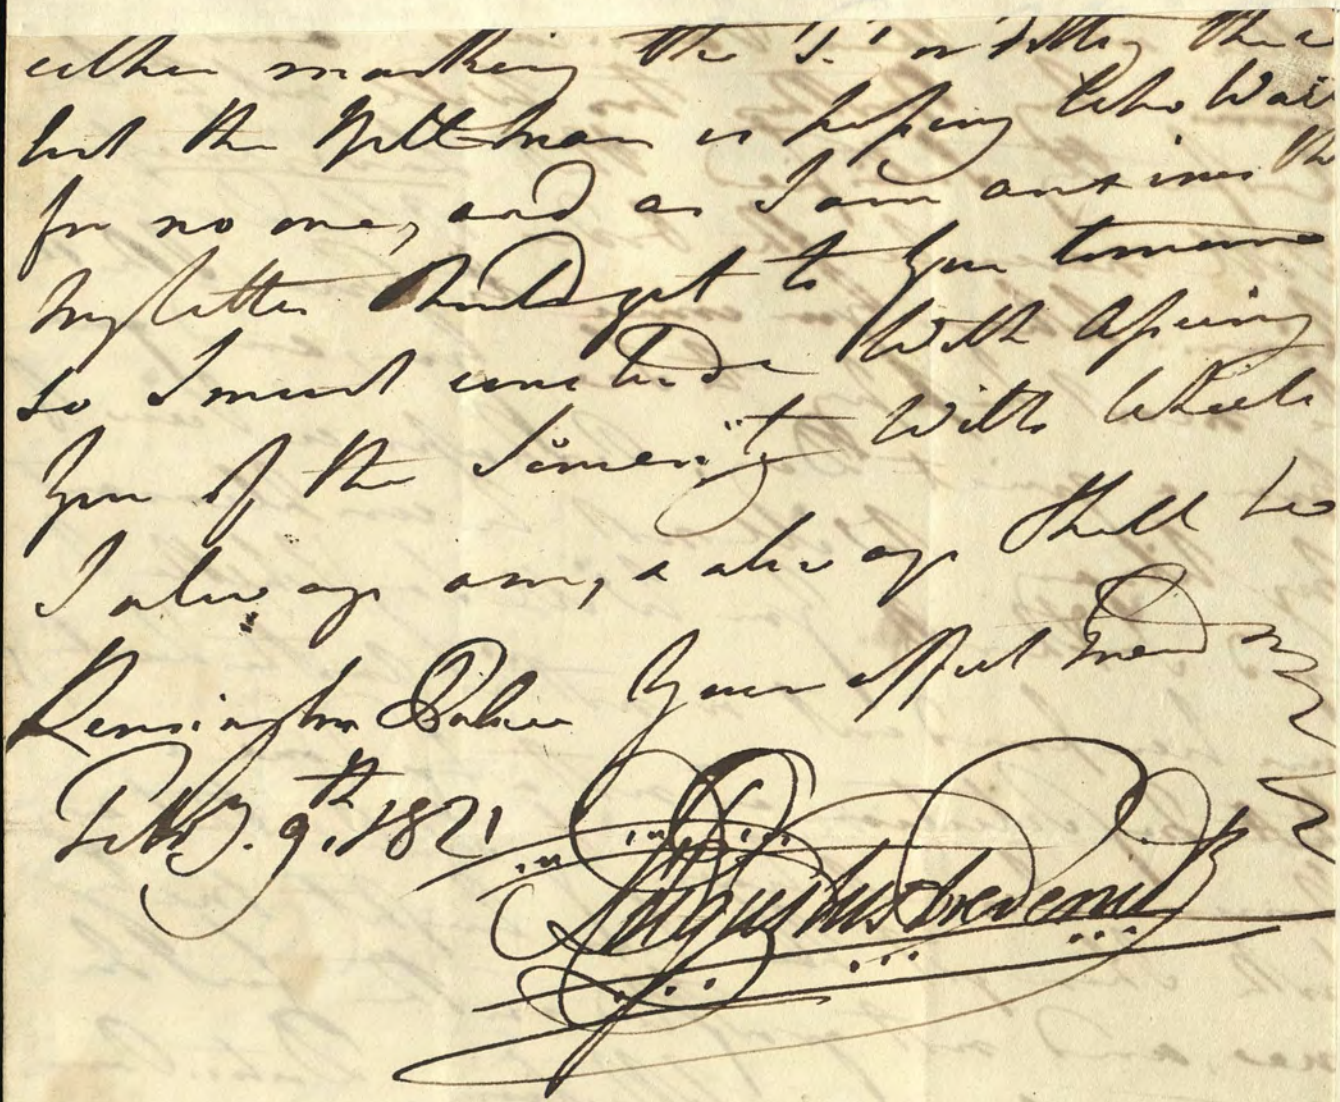 either marking the T.' or dotting the i
but the Bellman is passing who waits
for no one, and as I am anxious th
my letter should get to you tomorro
so I must conclude with assuring
you of the sincerity with which
I always am, & always shall be
Your affect friend
Kensington Palace
Feby. 9th. 1821
Augustus Frederick